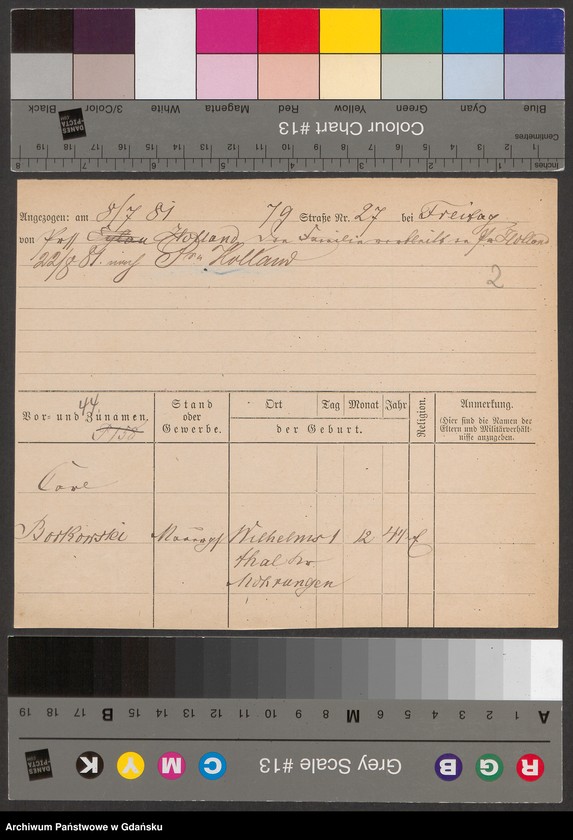 Blue Cyan Green Yellow Red Magenta White 3/Color Black
Colour Chart #13
DANES PICTA
Centimetres
1 2 3 4 5 6 7 8 9 10 11 12 13 14 15 16 17 18 19
Inches 1 2 3 4 5 6 7 8
Angezogen: am 8/7 81 79 Straße Nr. 27 bei Freitag
von Holland, die Familie verbleibt in Pr Holland
22/8 81. nach Pr. Holland
2
44
Vor- und Zunamen. Stand oder Gewerbe. Ort Tag Monat Jahr der Geburt. Religion. Anmerkung.
(Hier sind die Namen der Eltern und Militärverhältnisse anzugeben.
Carl
Borkowski Wilhelms 1 12 44
thal Kr
Mohrungen
A 1 2 3 4 5 6 M 8 9 10 11 12 13 14 15 B 17 18 19
R G B Grey Scale #13 C M Y K
DANES PICTA
Archiwum Państwowe w Gdańsku